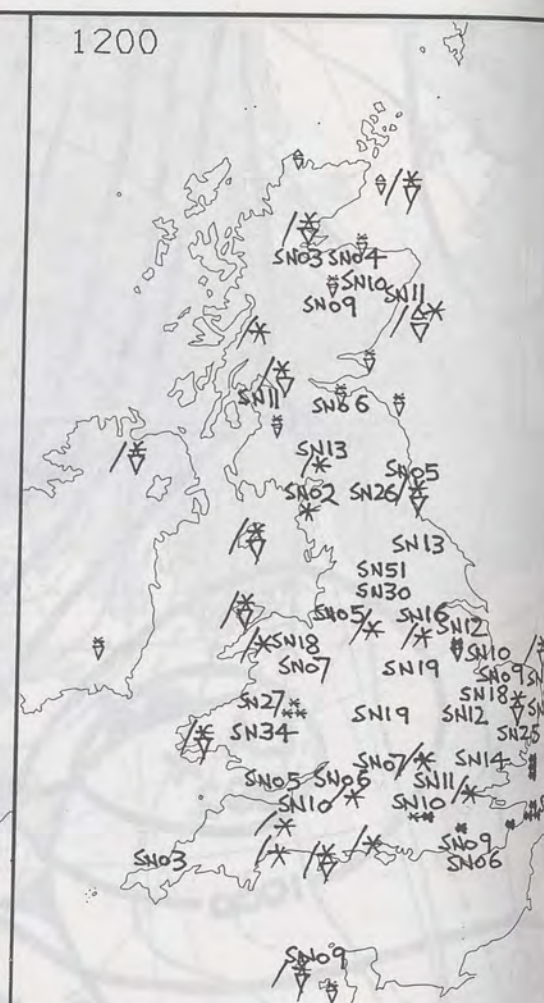 1200
SN03 SN04
SN10
SN09 SN11
SN11 SN06
SN13
SN05
SN02 SN26
SN13
SN51
SN30
SN05 SN16
SN12
SN18 SN10
SN07 SN19 SN09
SN18
SN27
SN34 SN19 SN12
SN25
SN07 SN14
SN05 SN06 SN11
SN10 SN10
SN03 SN09
SN06
SN09